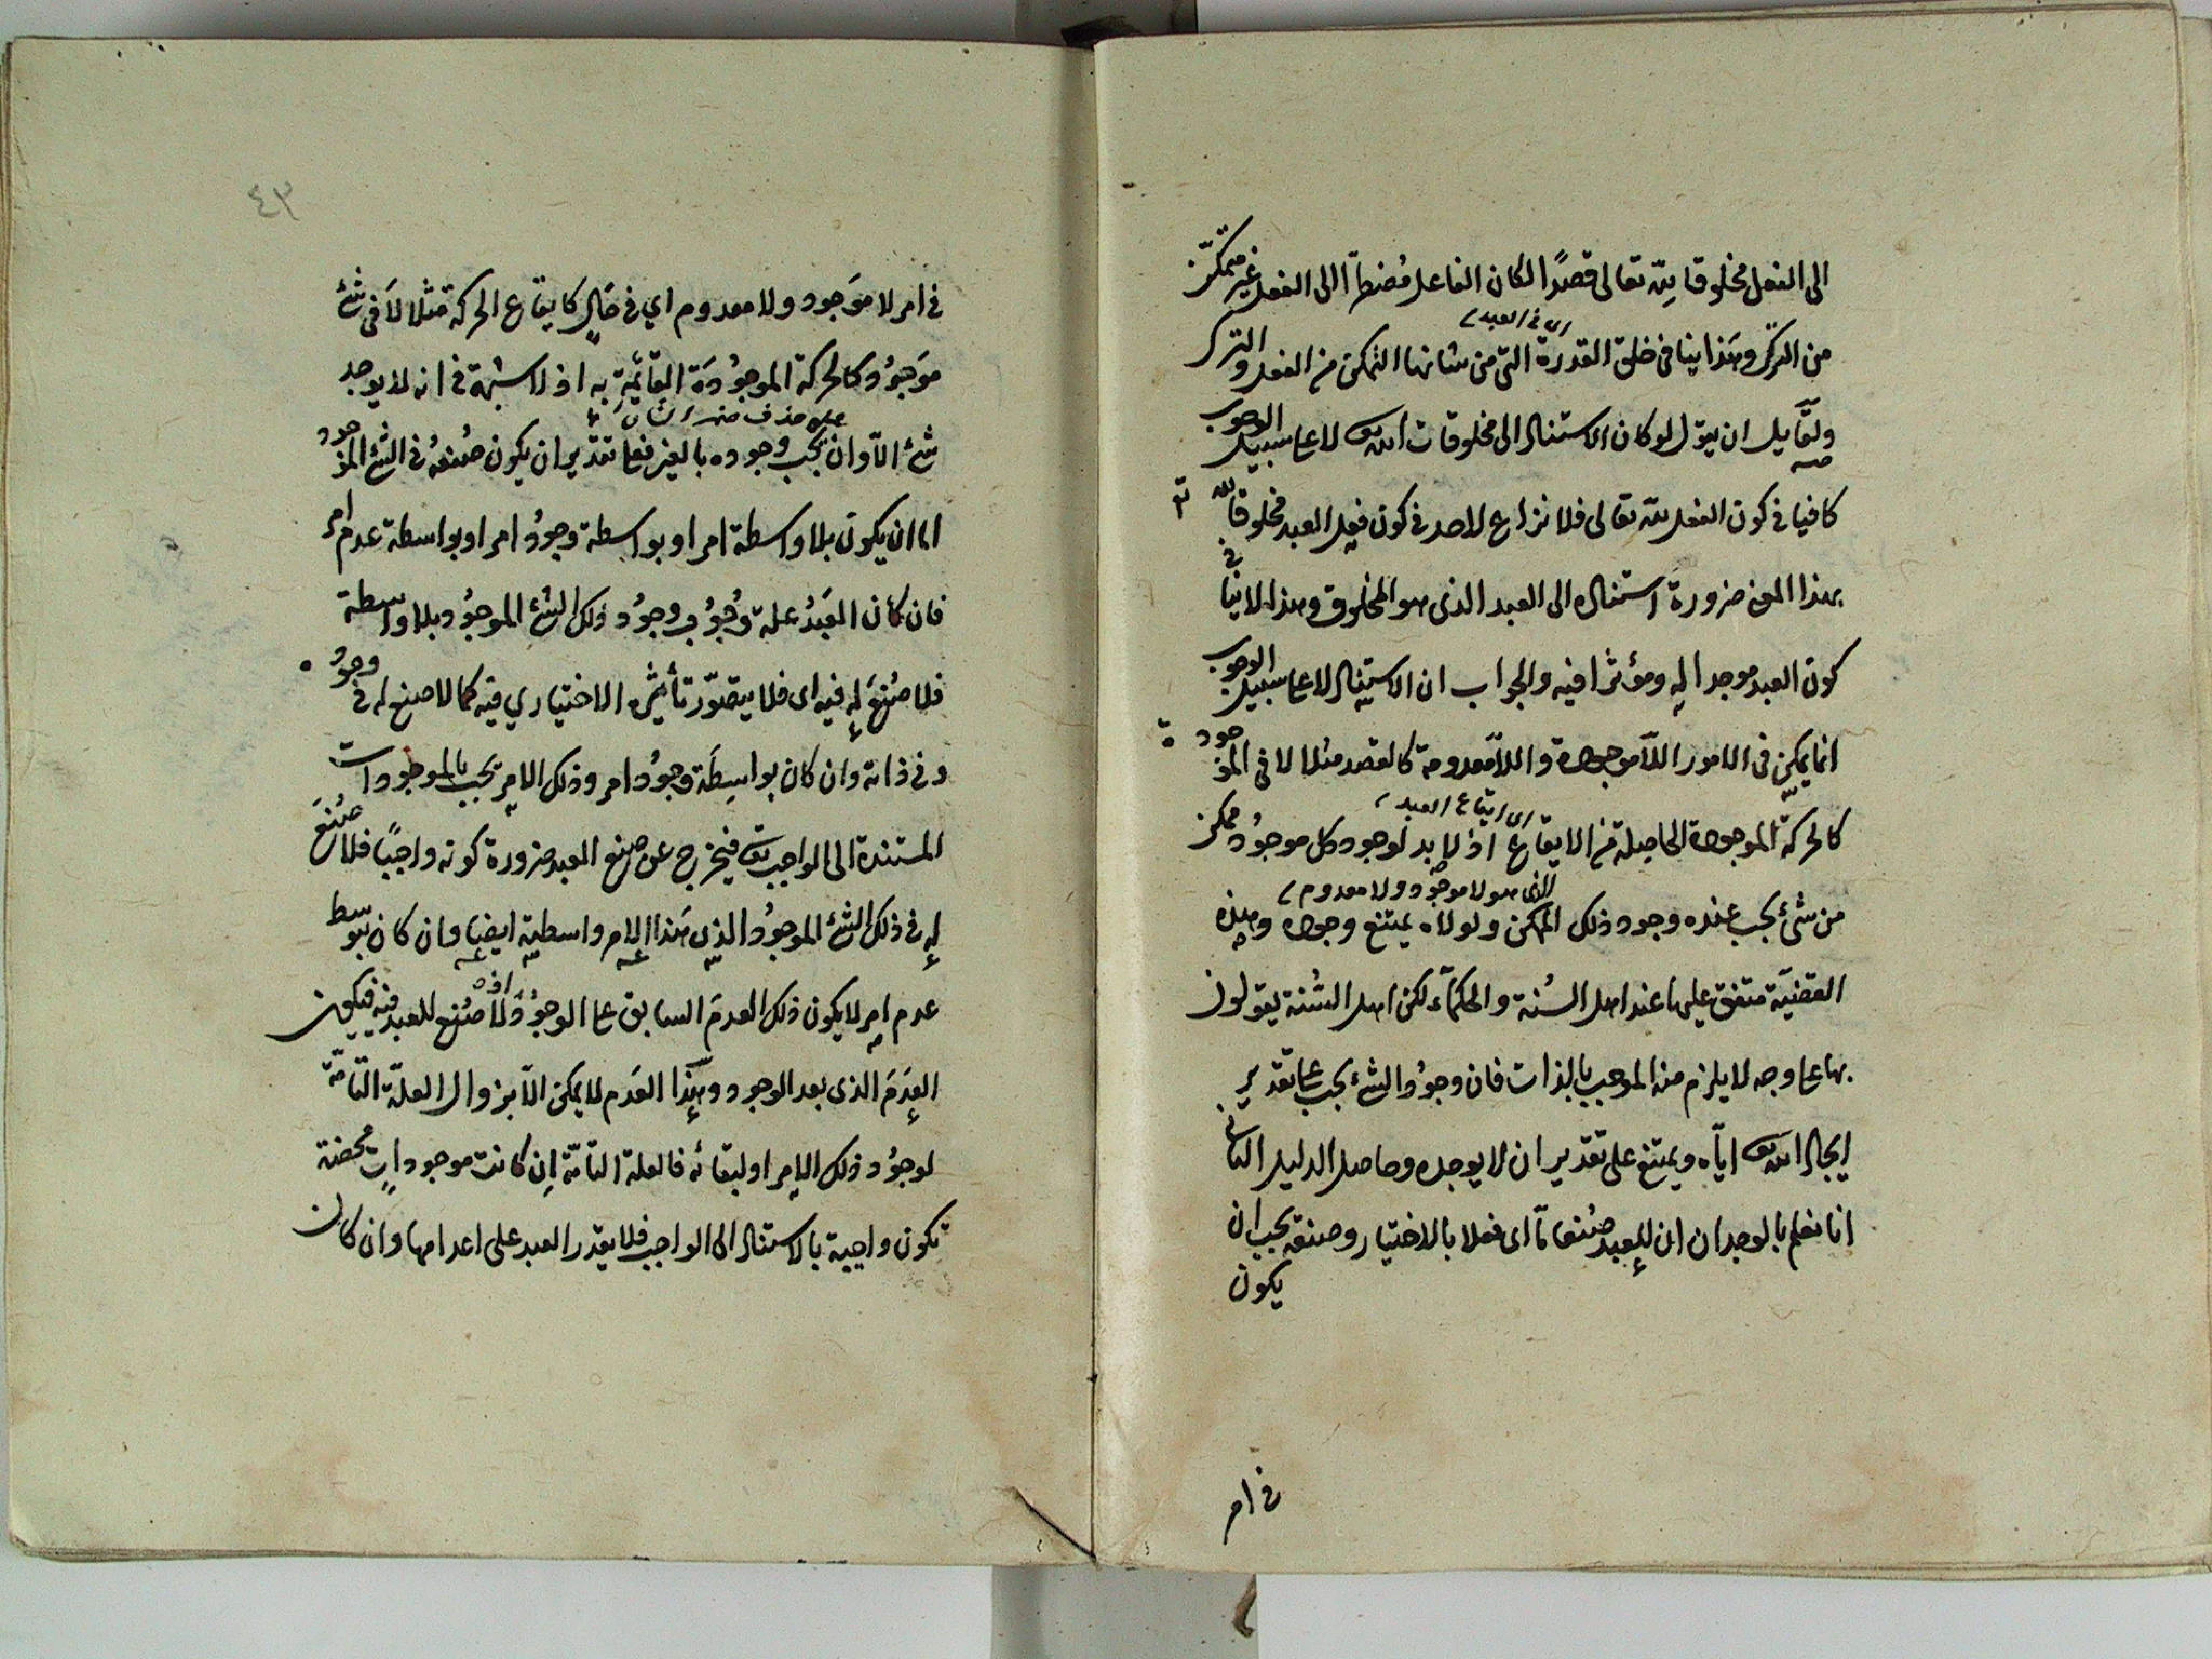 الى الفعل مخلوقا لله تعالى قصدًا لكان الفاعل مضطرا الى الفعل غير متمكّن
من الترك وهذا ينافى خلق القدرة التى من شانها التمكن من الفعل والترك
اى فى العبد
ولقايل ان يقول لو كان الاستناد الى مخلوقات الله تعالى لا على سبيل الوجوب
كافيا فى كون الفعل لله تعالى فلا نزاع لاحد فى كون فعل العبد مخلوقا لله تع
بهذا المعنى ضرورة استناده الى العبد الذى هو المخلوق وهذا لا ينافى
كون العبد موجدا له ومؤثرا فيه والجواب ان الاستناد لا على سبيل الوجوب
انما يمكن فى الامور اللاموجودة واللامعدومة كالقصد مثلا لا فى الموجود
كالحركة الموجودة الحاصلة من الايقاع اذ لا بد لوجود كل موجود ممكن
اى ايقاع العبد
من شئ يجب عنده وجود ذلك الممكن ولولاه يمتنع وجوده وهذه
الذى هو لا موجود ولا معدوم
القضيّة متفق عليها عند اهل السُنة والحكماء لكن اهل السُنة يقولون
بها على وجه لا يلزم منه الموجب بالذات فان وجود الشئ يجب على تقدير
ايجاد الله تعالى ايّاه ويمتنع على تقدير ان لا يوجده وحاصل الدليل الثانى
انا نعلم بالوجدان ان للعبد صُنعا مّا اى فعلا بالاختيار وصنعه يجب ان
يكون
فى امر
٤٣
فى امر لا موجود ولا معدوم اي فى حال كايقاع الحركة مثلا لا فى شئ
موجود كالحركة الموجودة القائمة به اذ لا شبهة فى انه لا يوجد
على حذف ضمير الشان
شئ الّا وان يجب وجوده بالغير فعلى تقدير ان يكون صُنعهُ فى الشئ الموجود
اما ان يكون بلا واسطة امر او بواسطة وجود امر او بواسطة عدم امر
فان كان العَبدُ علة وُجُوب وجود ذلك الشئ الموجود بلا واسطة
فلا صُنعَ له فيه اى فلا يتصوّر تأثيره الاختياري فيه كما لا صنع له فى وجود
ه فى ذاته وان كان بواسطة وجود امر وذلك الامر يجب بالموجودات
المستندة الى الواجب تعالى فيخرج عن صنع العبد ضرورة كونه واجبًا فلا صُنعَ
له فى ذلك الشئ الموجود الذى هذا الامر واسطة ايضا وان كان بتوسط
عدم امر لا يكون ذلك العدمَ السابق على الوجود اذ لا صُنع للعبد فيه فيكون
العدَمَ الذى بعد الوجود وهذا العَدم لا يمكن الّا بزوال العلّة التامّة
لوجود ذلك الامر او لبقائه فالعلة التامّة ان كانت موجودات محضة
تكون واجبة بالاستناد الى الواجب فلا يقدر العبد على اعدامها وان كان